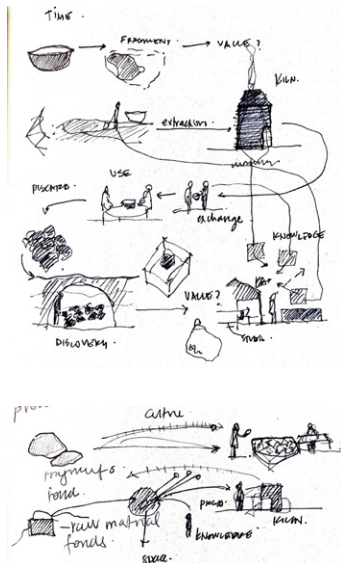 TIME.
FRAGMENT.
VALUE?
KILN.
extraction.
USE
DISCARD.
exchange
KNOWLEDGE
VALUE?
DISCOVERY.
culture
fragments
found.
raw material
fonds.
KNOWLEDGE
KILN.
space.